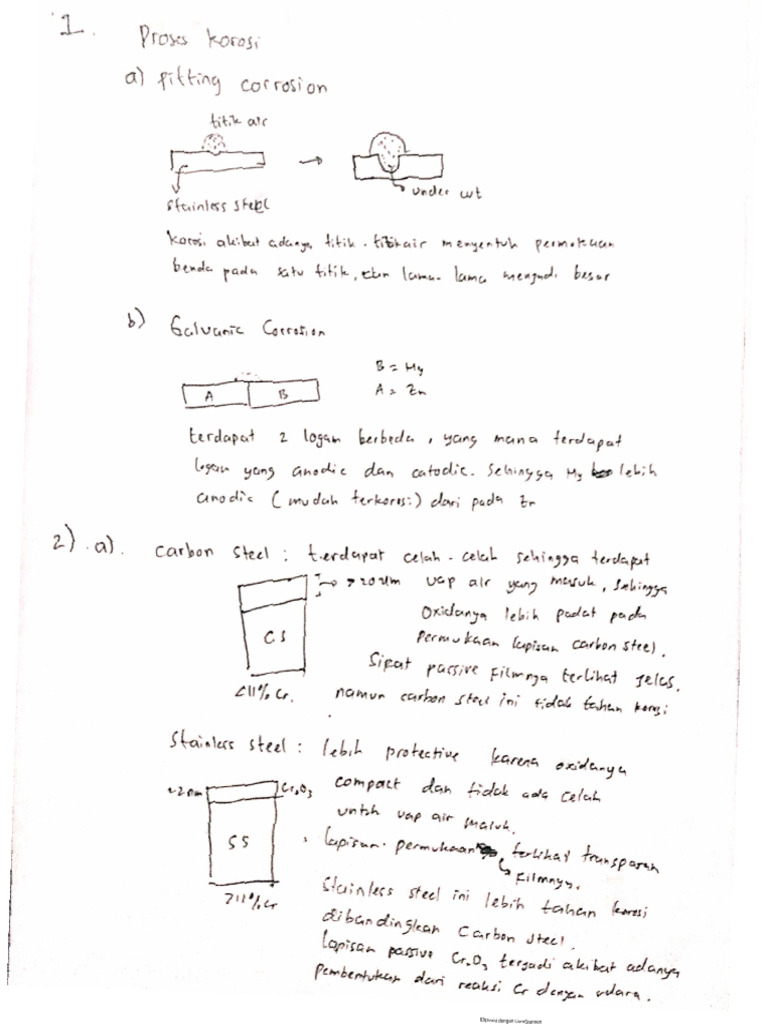 1. Proses korosi
a) pitting corrosion
titik air
under cut
stainless steel
korosi akibat adanya titik-titik air menyentuh permukaan
benda pada satu titik, lama-lama menjadi besar
b) Galvanic Corrosion
B = Mg
A = Zn
A B
terdapat 2 logam berbeda, yang mana terdapat
logam yang anodic dan catodic. Sehingga Mg lebih
anodic (mudah terkorosi) dari pada Zn
2). a). Carbon steel : terdapat celah-celah sehingga terdapat
>20 µm uap air yang masuk, sehingga
Oxidanya lebih padat pada
CS
permukaan lapisan carbon steel.
Sifat passive filmnya terlihat jelas,
<11% Cr. namun carbon steel ini tidak tahan korosi
Stainless steel : lebih protective karena oxidanya
~2nm Cr₂O₃ compact dan tidak ada celah
untuk uap air masuk.
SS
lapisan permukaan terlihat transparan
filmnya.
>11% Cr
Stainless steel ini lebih tahan korosi
dibandingkan Carbon steel.
lapisan passive Cr₂O₃ terjadi akibat adanya
pembentukan dari reaksi Cr dengan udara.
Dipindai dengan CamScanner